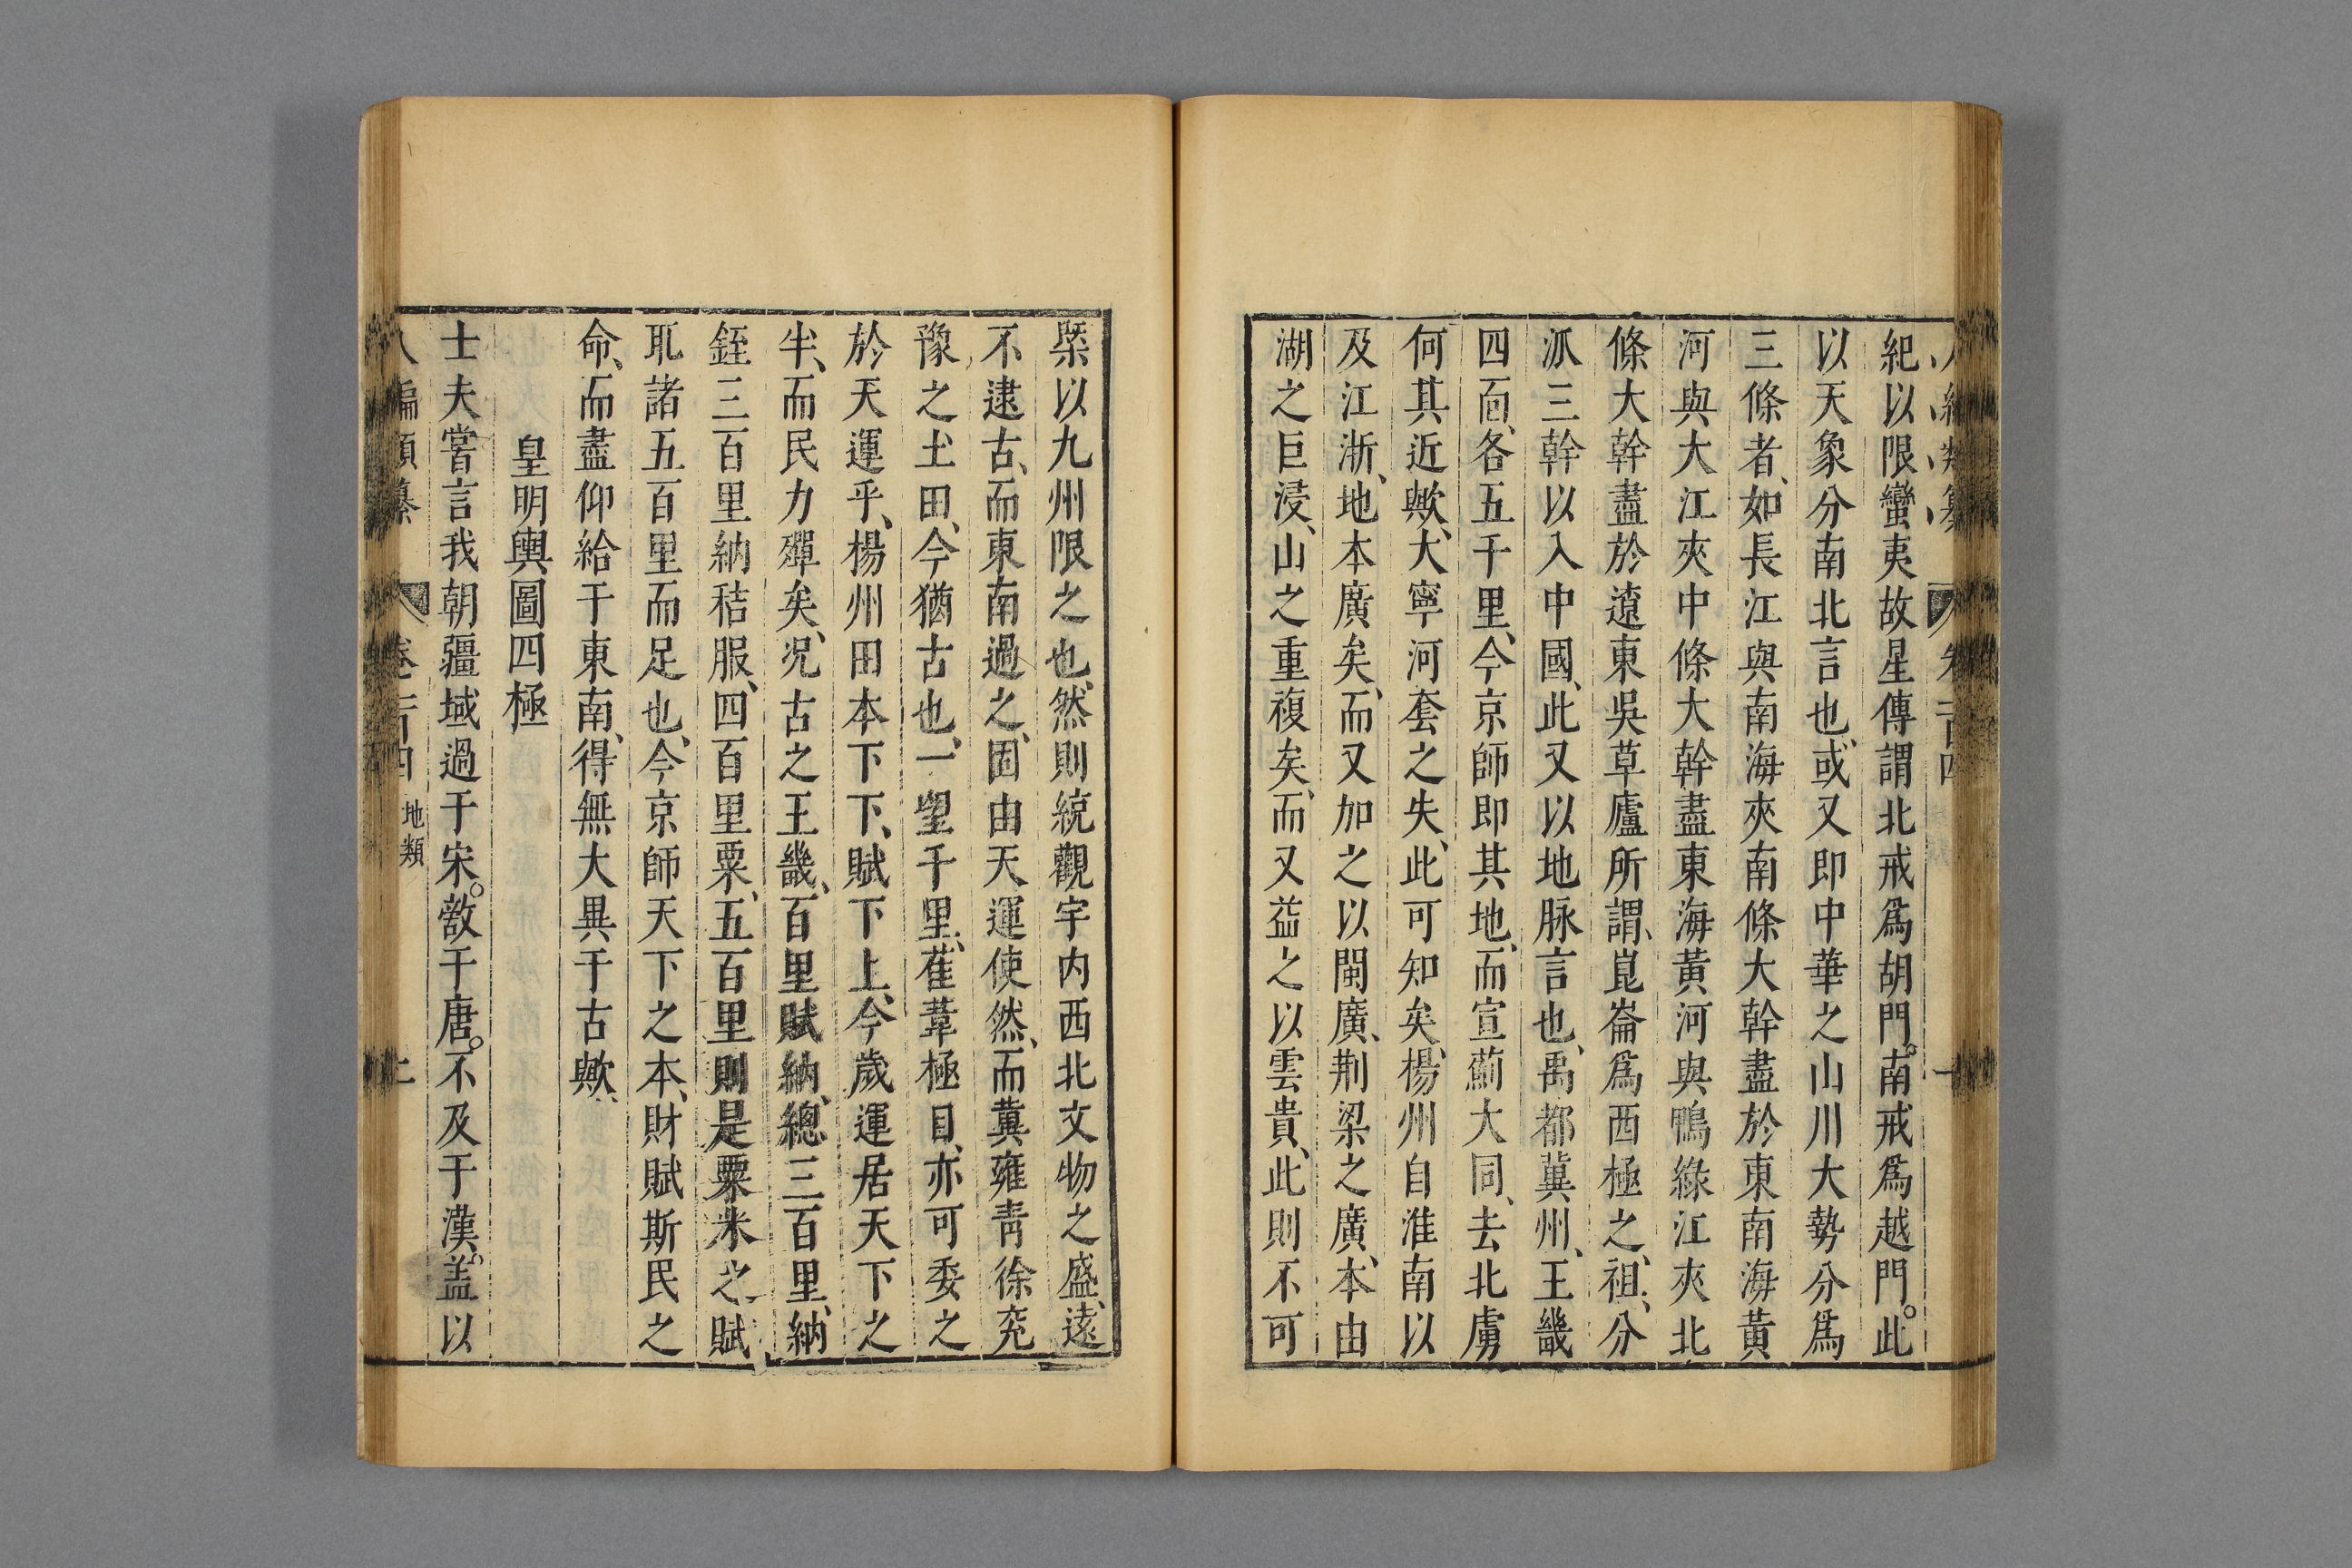 紀以限蠻夷故星傳謂北戒爲胡門。南戒爲越門。此
以天象分南北言也、或又即中華之山川大勢分爲
三條者、如長江與南海夾南條大幹盡於東南海黃
河與大江夾中條大幹盡東海黃河與鴨綠江夾北
條大幹盡於遼東吳草廬所謂、崑崙爲西極之、祖、分
派三幹以入中國、此又以地脉言也、禹都冀州、王畿
四面、各五千里、今京師即其地、而宣薊大同、去北虜
何其近歟、大寧河套之失、此可知矣、楊州自淮南以
及江浙、地本廣矣、而又加之以閩廣、荆梁之廣、本由
湖之巨浸、山之重複矣、而又益之以雲貴、此則不可
槩以九州限之也、然則統觀宇内西北文物之盛、遠
不逮古、而東南過之、固由天運使然、而冀雍青徐兖
豫之土田、今猶古也、一望千里、萑葦極目、亦可委之
於天運乎、楊州田本下下、賦下上、今歲運居天下之
半、而民力殫矣、况古之王畿、百里賦納、總三百里、納
銍三百里納秸服、四百里粟、五百里則是粟米之賦
耴諸五百里而足也、今京師天下之本、財賦斯民之
命、而盡仰給于東南、得無大異于古歟、
皇明輿圖四極
士夫嘗言我朝疆域過于宋。敵于唐。不及于漢。盖以
八編類纂 卷一百四 地類